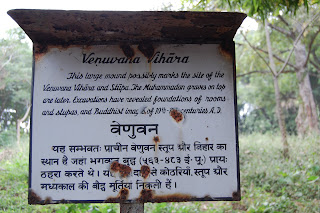 Venuvana Vihāra
This large mound possibly marks the site of the
Venuvana Vihāra and Stūpa. The Muhammadan graves on top
are later. Excavations have revealed foundations of rooms
and stupas, and Buddhist of centuries A. D.
वेणुवन
यह सम्भवतः प्राचीन वेणुवन स्तूप और विहार का
स्थान है जहां भगवान बुद्ध (५६३-४८३ ई. पू.) प्रायः
ठहरा करते थे। से कोठरियाँ, स्तूप और
मध्यकाल की बौद्ध मूर्तियां निकली हैं।